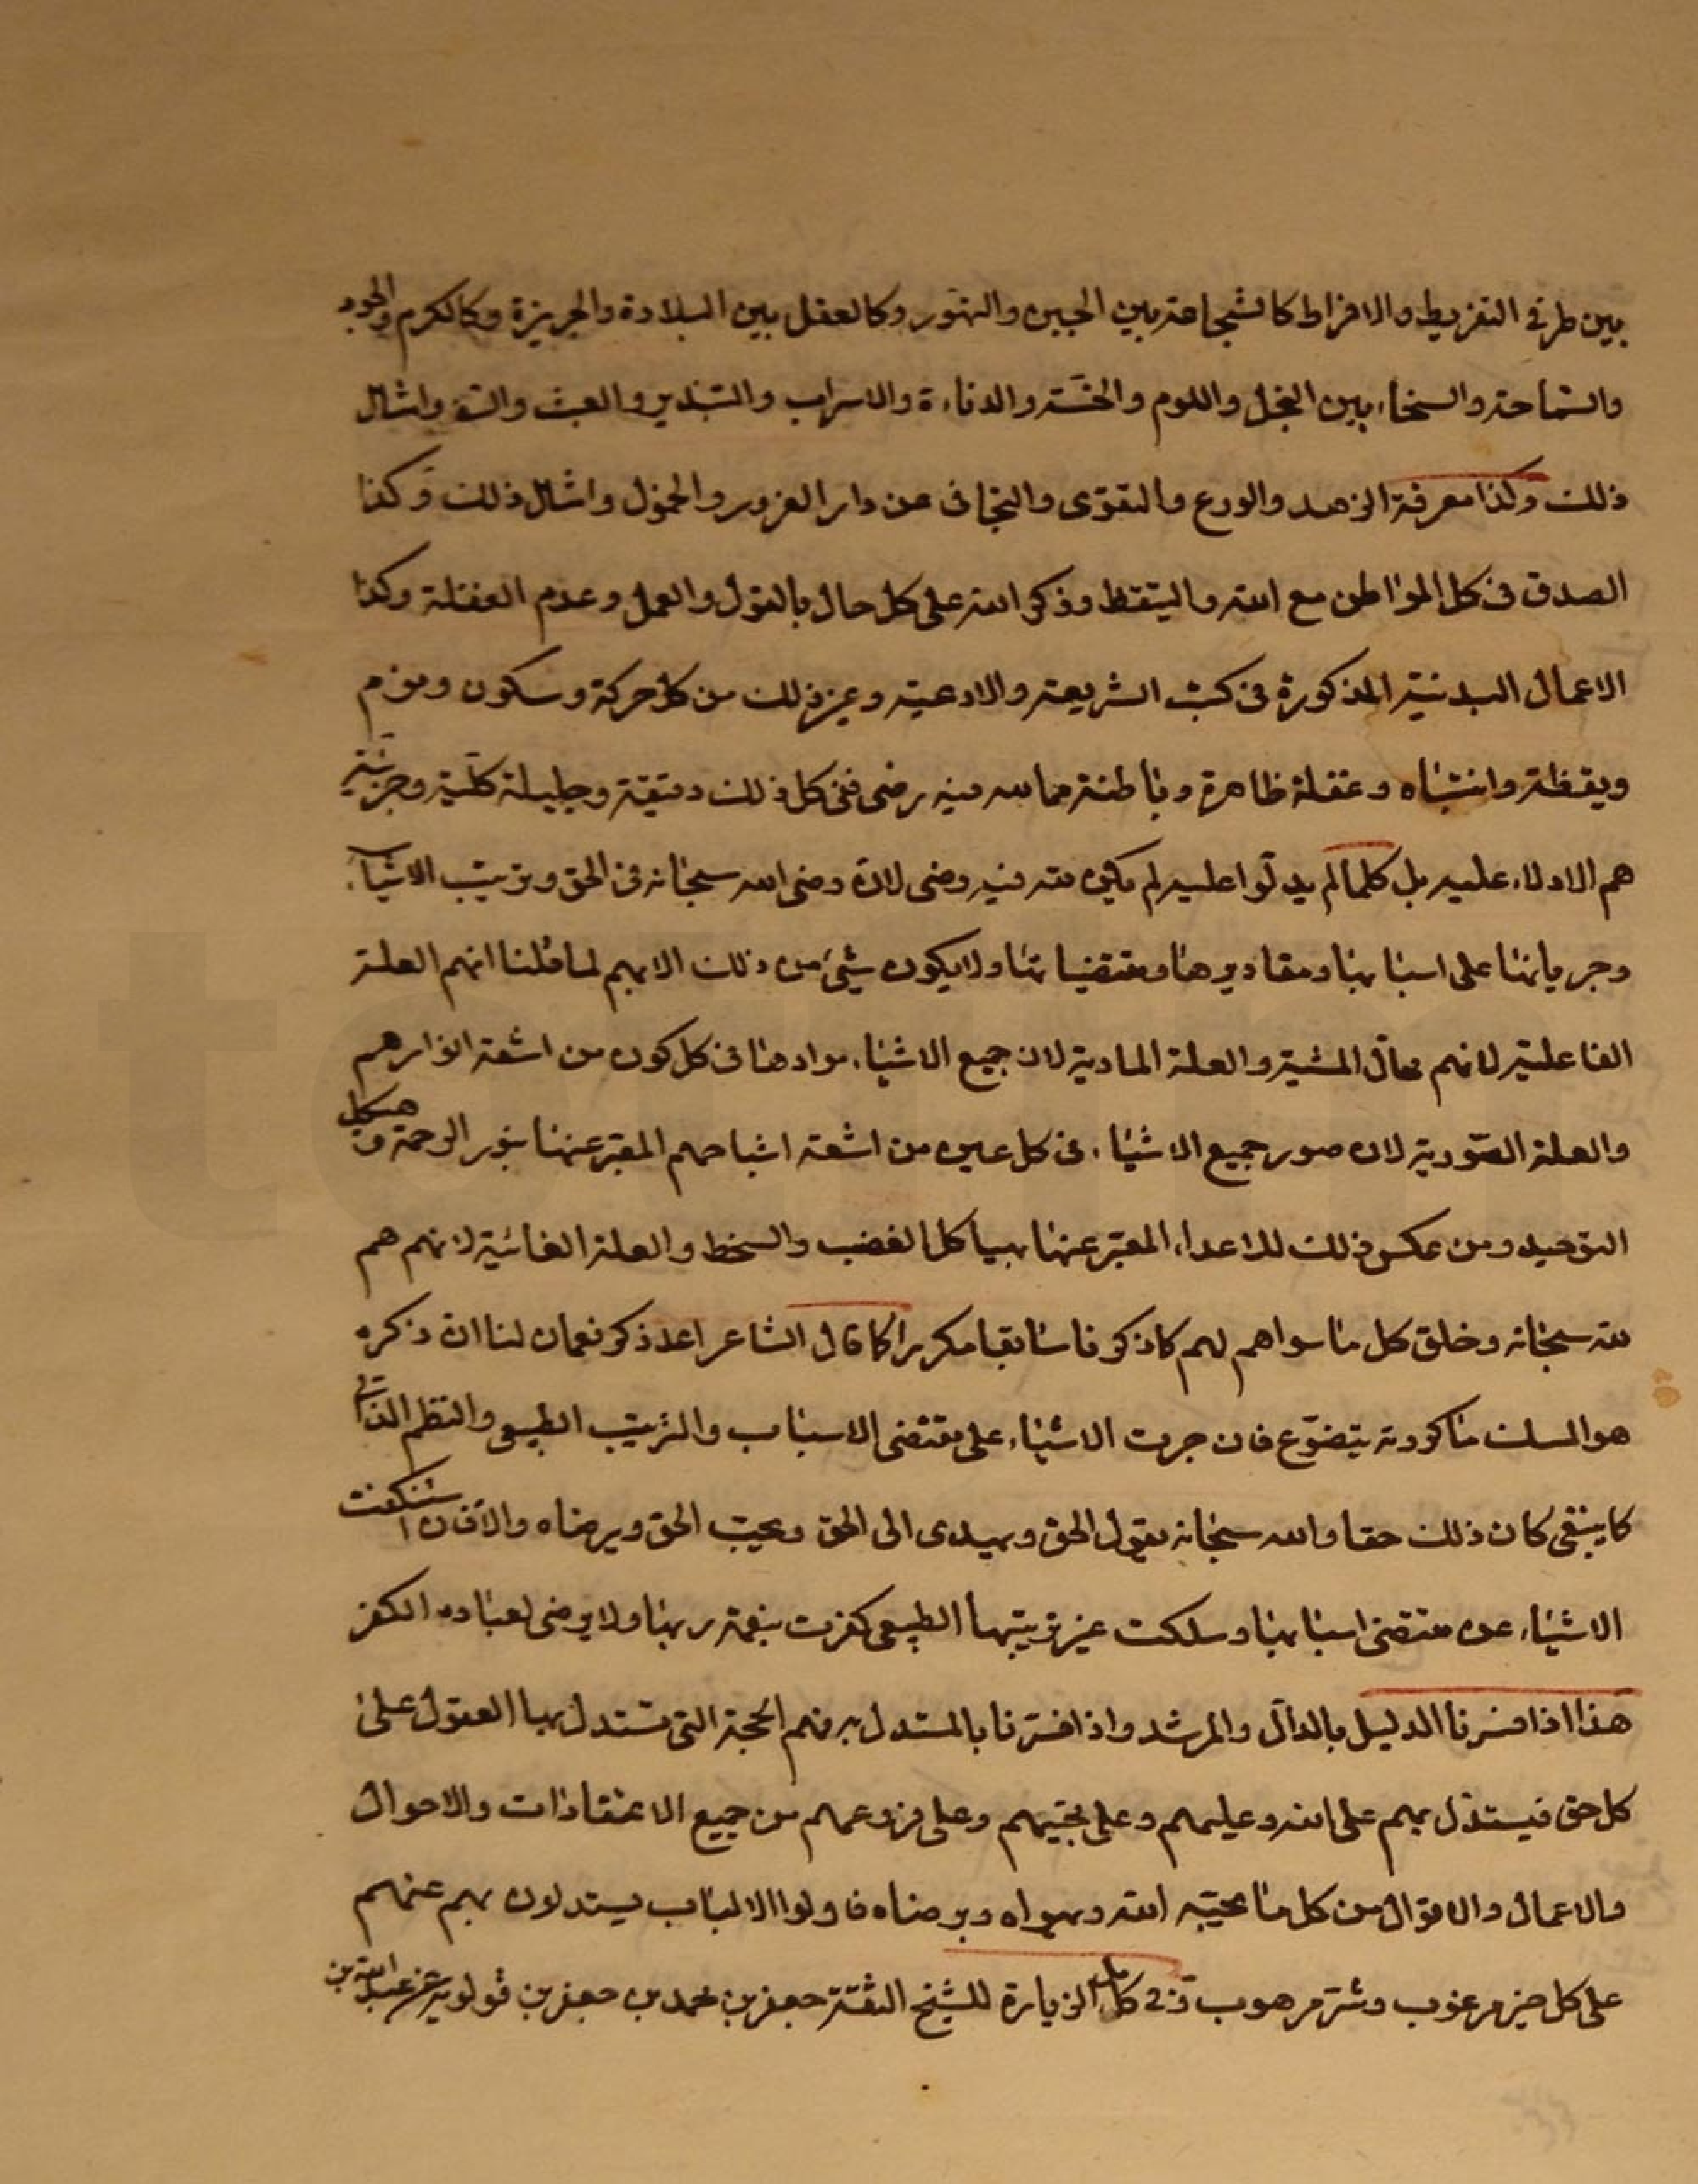 بين طرفي التفريط والافراط كالشجاعة بين الجبن والتهور وكالعقل بين البلادة والجربزة وكالكرم والجود
والسماحة والسخاء بين البخل واللوم والخسّة والدناءة والاسراف والتبذير والعبث وامثال
ذلك وكذا معرفة الزهد والورع والتقوى والتجافى عن دار الغرور والخمول وامثال ذلك وكذا
الصدق فى كل المواطن مع الله واليتقظ وذكر الله على كل حال بالقول والعمل وعدم الغفلة وكذا
الاعمال البدنية المذكورة فى كتب الشريعة والادعية وغير ذلك من كل حركة وسكون ونوم
ويقظة وانتباه وغفلة ظاهرة وباطنة مما لله فيه رضى ففى كل ذلك دقيقة وجليلة كلية وجزئية
هم الادلاء عليه بل كلما لم يدلّوا عليه لم يكن لله فيه رضى لان رضى الله سبحانه فى الحق وترتيب الاشياء
وجريانها على اسبابها ومقاديرها ومقتضياتها ولا يكون شيئ من ذلك الا بهم لما قلنا انهم العلة
الفاعلية لانهم محالّ المشية والعلة المادية لان جميع الاشياء موادها فى كل كون من اشعة انوارهم
والعلة الصّورية لان صور جميع الاشياء فى كل عين من اشعة اشباحهم المعبّر عنها بنور الرحمة وهيكل
التوحيد ومن عكس ذلك للاعداء المعبّر عنها بهياكل الغضب والسخط والعلة الغائية لانهم هم
لله سبحانه وخلق كل ما سواهم لهم كما ذكرنا سابقا مكررا كما قال الشاعر اعد ذكر نعمان لنا ان ذكره
هو المسك ما كررته يتضوّع فان جرت الاشياء على مقتضى الاسباب والترتيب الطبيعى والنظم الذاتى
كما ينبغى كان ذلك حقا والله سبحانه يقول الحق ويهدى الى الحق ويحبّ الحق ويرضاه والّا فان استنكفت
الاشياء عن مقتضى اسبابها وسلكت غير ترتيبها الطبيعى كفرت بنعمة ربها ولا يرضى لعباده الكفر
هذا اذا فسرنا الدليل بالدالّ والمرشد واذا فسّرنا بالمستدل به فهم الحجة التى تستدل بها العقول على
كل حق فيستدل بهم على الله وعليهم وعلى محبّيهم وعلى فروعهم من جميع الاعتقادات والاحوال
والاعمال والاقوال من كل ما يحبّه الله ويهواه ويرضاه فاولوا الالباب يستدلون بهم عنهم
على كل خير مرغوب وشرّ مرهوب وفى كامل الزيارة للشيخ الثقة جعفر بن محمد بن جعفر بن قولويه عن عبد الله بن